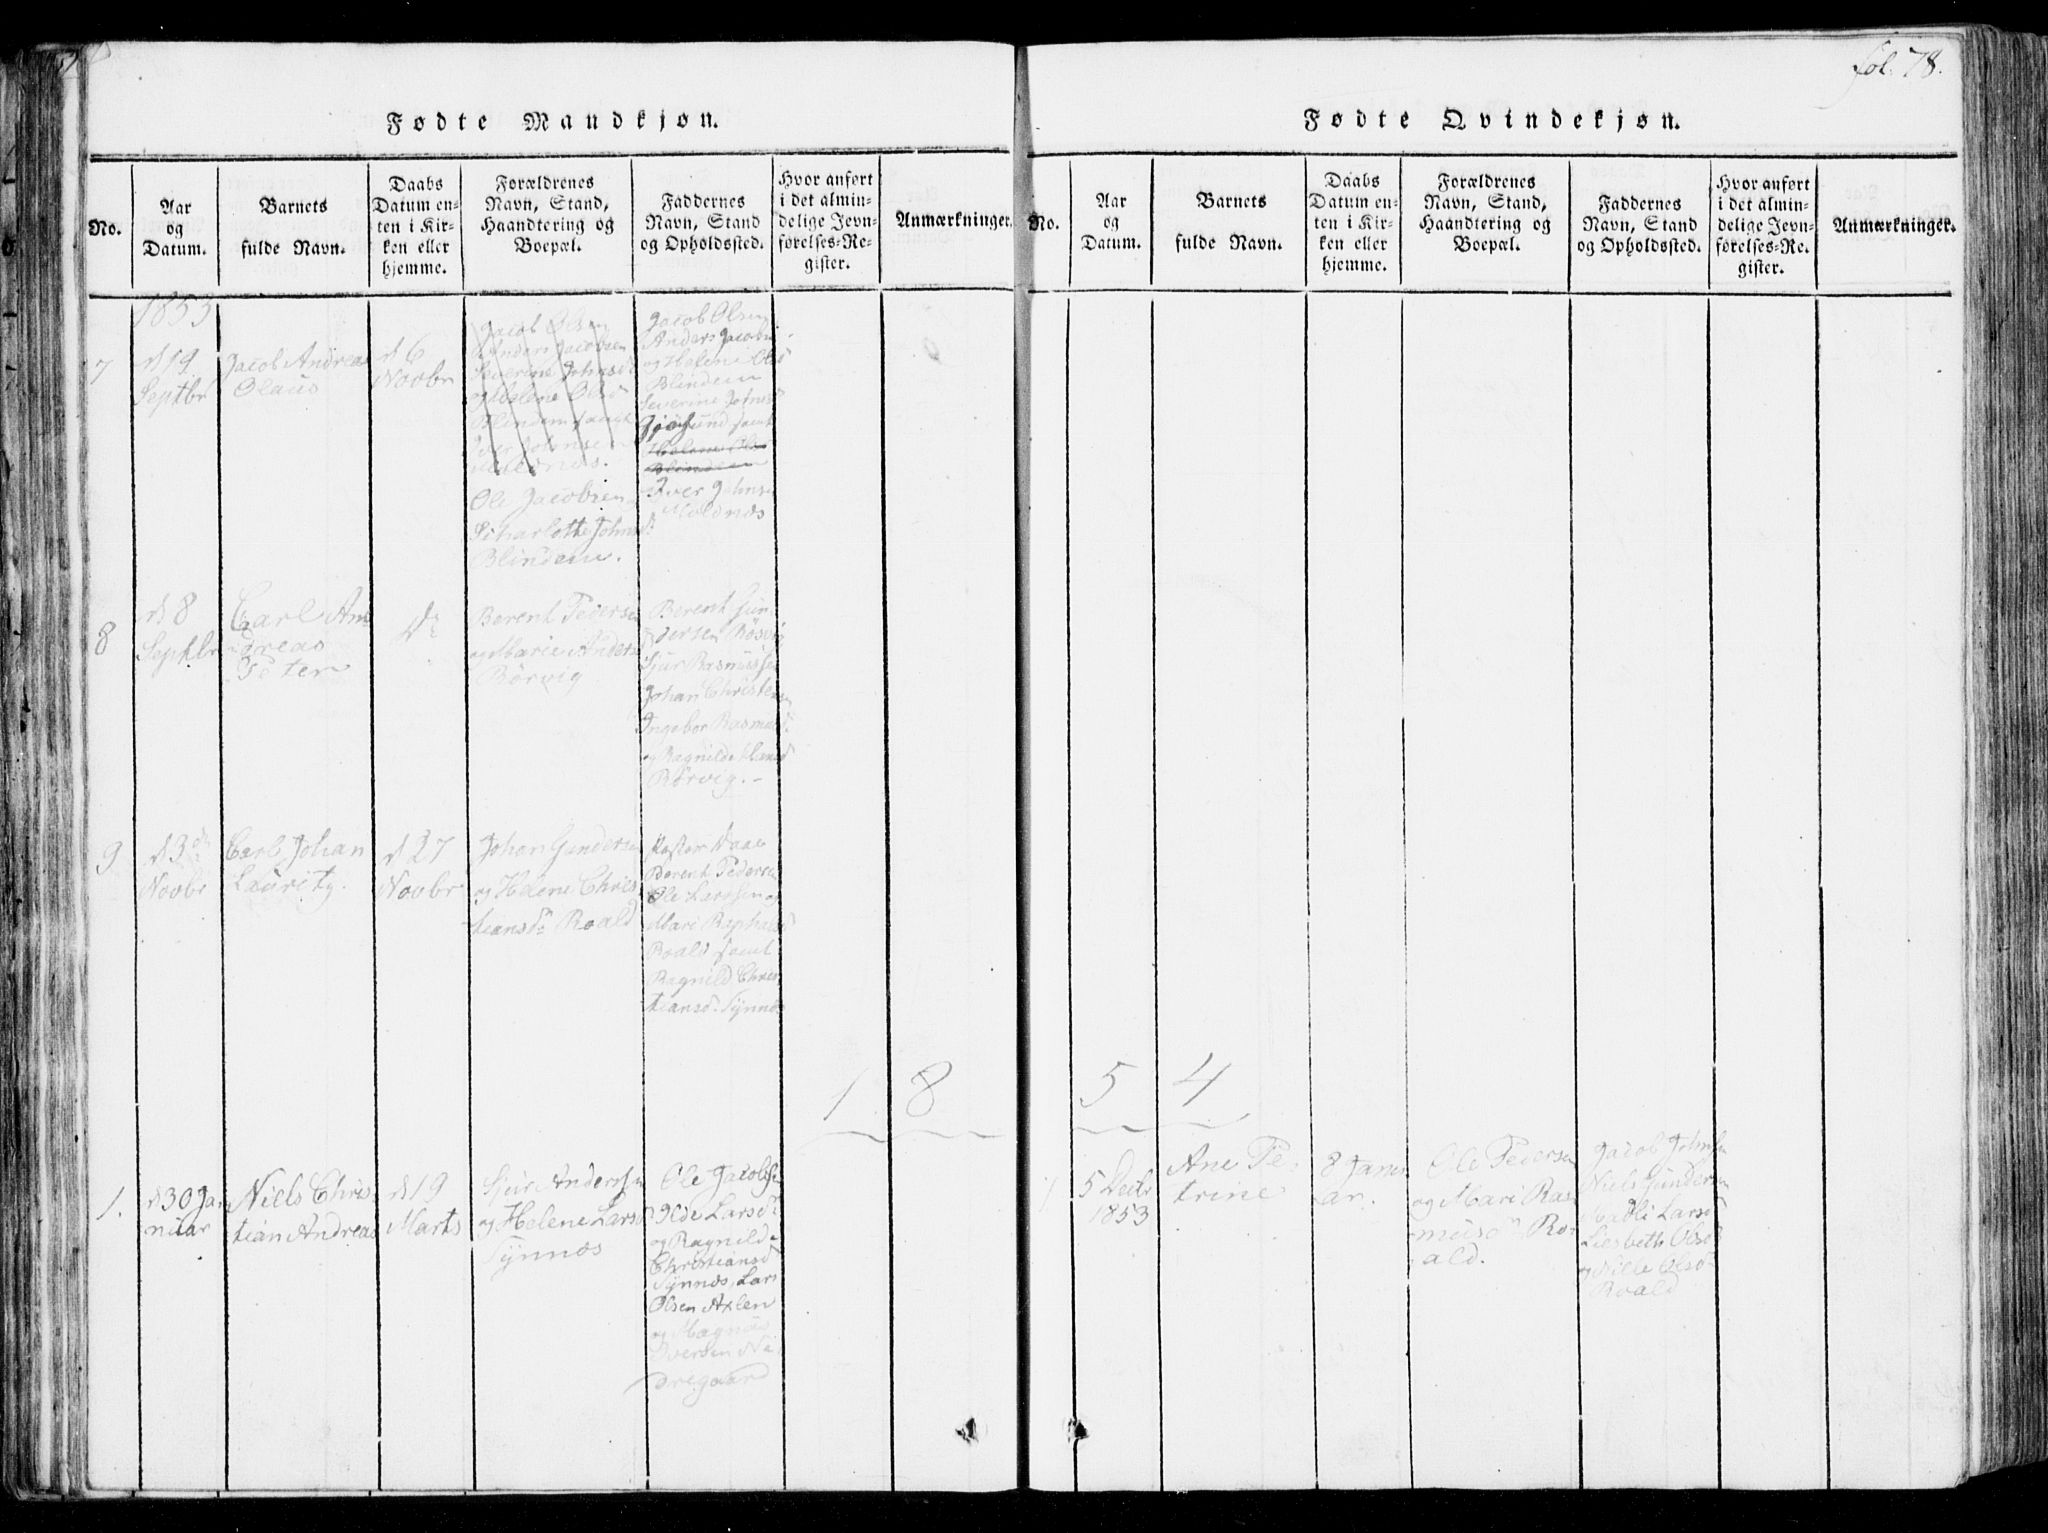 fol. 78.
Fødte Mandkjøn.
No.
Aar
og
Datum.
Barnets
fulde Navn.
Daabs
Datum en-
ten i Kir-
ken eller
hjemme.
Forældrenes
Navn, Stand,
Haandtering og
Boepæl.
Faddernes
Navn, Stand
og Opholdssted.
Hvor anført
i det almin-
delige Jevn-
førelses-Re-
gister.
Anmærkninger.
1853
7
d 19
Septbr
Jacob Andreas
Olaus
d 6
Novbr
Jacob Olsen
Anders Jacobsen
Severine Johnsd
og Helene Olsd
Blindem samt
Iver Johnsen
Moldnæs.
Ole Jacobsen
Scharlotte Johnsd
Blindem.
Jacob Olsen
Anders Jacobs
og Helene Olsd
Blindem
Severine Johnsd
Gjøsund samt
Helene Ols
Blindem
Iver Johnsen
Moldnæs
8
d 8
Septbr
Carl An
dreas
Peter
Do
Berent Pedersen
og Marie Anders
Rörvig
Berent Gun
dersen Rösvig
Sjur Rasmussen
Johan Christensen
Ingebor Rasmusd
og Ragnilde Hansd
Rörvig.-
9
d 3de
Novbr
Carl Johan
Lauritz.
d 27
Novbr
Johan Gundersen
og Helene Chris
tiansd Roald
Pastor Daae
Berent Pedersen
Ole Larssen og
Mari Raphaelsd
Roald samt
Ragnild Chris
tiansd. Synnæs
1 8
1.
d 30 Ja
nuar
Niels Chris
tian Andreas
d 19
Marts
Sjur Anderssen
og Helene Larsd
Synnæs
Ole Jacobsen
Ilde Larsd
og Ragnild
Christiansd
Synnæs, Lars
Olsen Axlen
og Magnus
Iversen Ne
dregaard
Fødte Qvindekjøn.
No.
Aar
og
Datum.
Barnets
fulde Navn.
Daabs
Datum en-
ten i Kir-
ken eller
hjemme.
Forældrenes
Navn, Stand,
Haandtering og
Boepæl.
Faddernes
Navn, Stand
og Opholdssted.
Hvor anført
i det almin-
delige Jevn-
førelses-Re-
gister.
Anmærkninger.
5 4
1
5 Decbr
1853
Ane Pe-
trine
8 Janu
ar.
Ole Pedersen
og Mari Ras
musd Ro-
ald.
Jacob Johnsen
Niels Gundersen
Madli Larsd
Liesbeth Olsd
og Nille Olsd
Roald